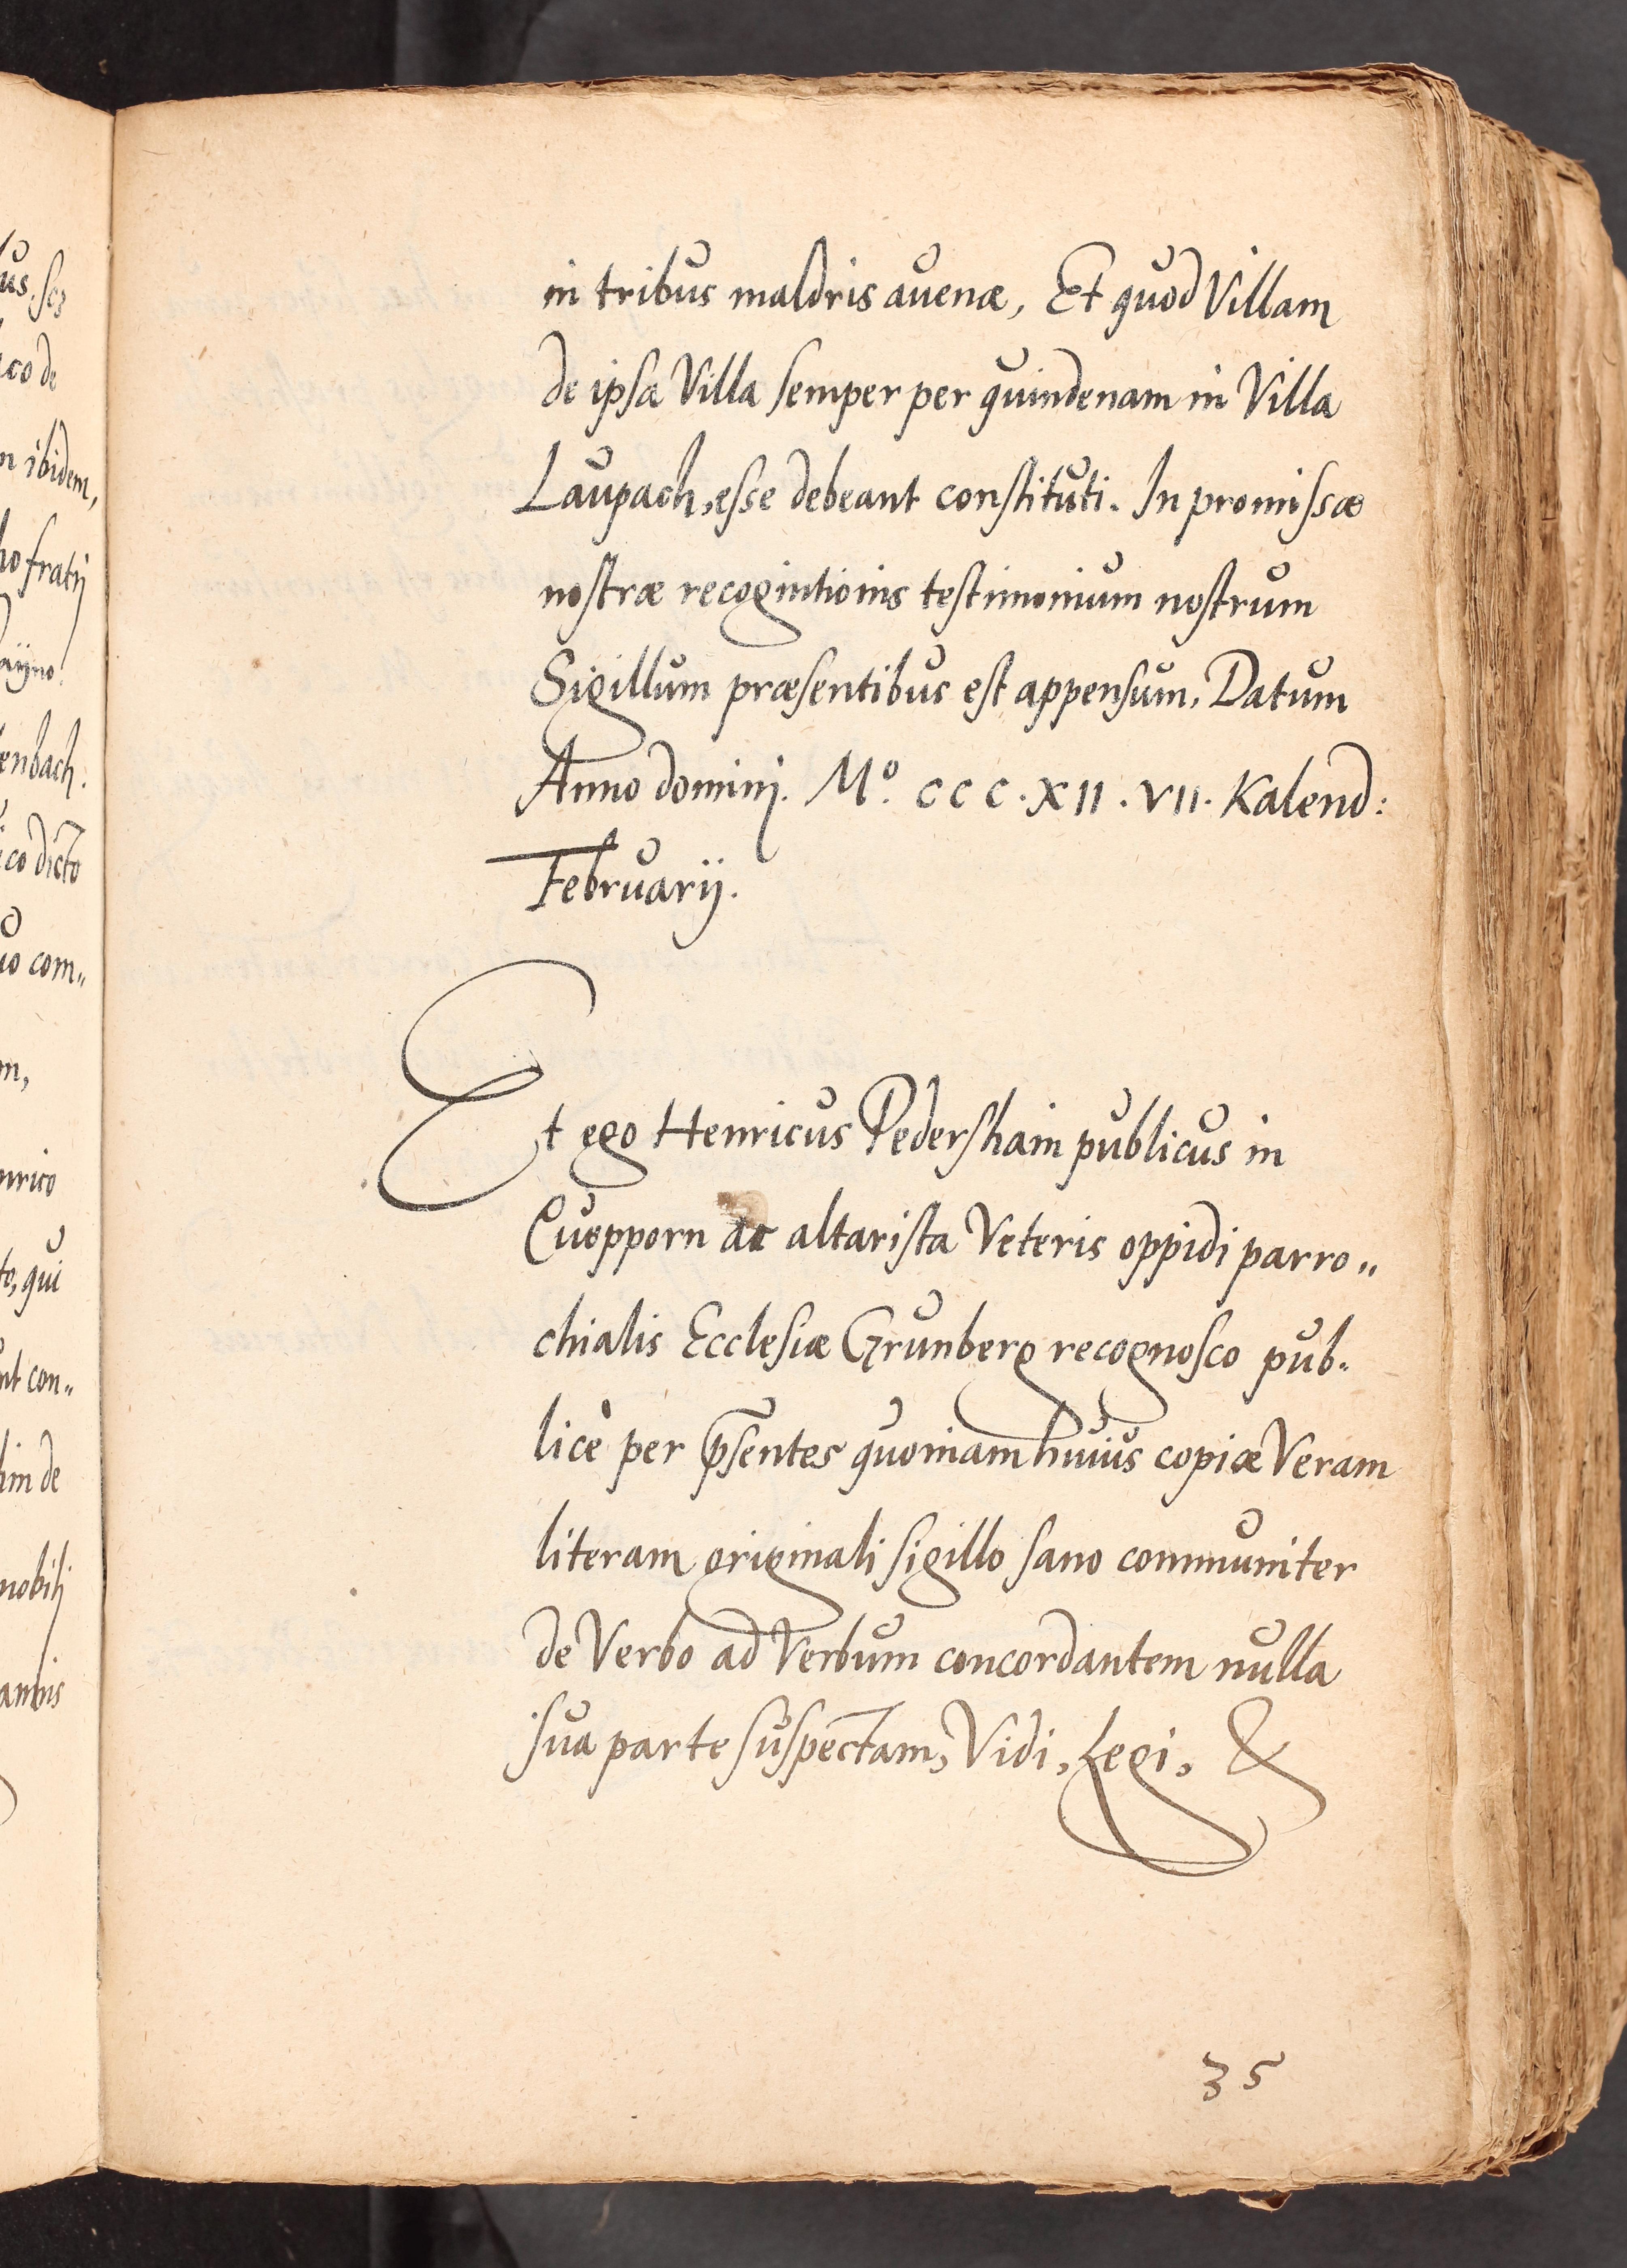 in tribus maldris auenæ, Et quod Villam
de ipsa Villa semper per quindenam in Villa
Laupach, esse debeant constituti. In promissæ
nostræ recognitionis testimonium nostrum
Sigillum præsentibus est appensum. Datum
Anno dominj. Mº. CCC. XII. VII. Kalend:
Februarij.
Et ego Henricus Pedershain publicus in
Cuopporn ac altarista Veteris oppidi parro„
chialis Ecclesiæ Grunberg recognosco pub„
licè per p̃sentes quoniam huius copiæ Veram
literam originali sigillo sano communiter
de Verbo ad Verbum concordantem nulla
sua parte suspectam, Vidi, Legi, &
35